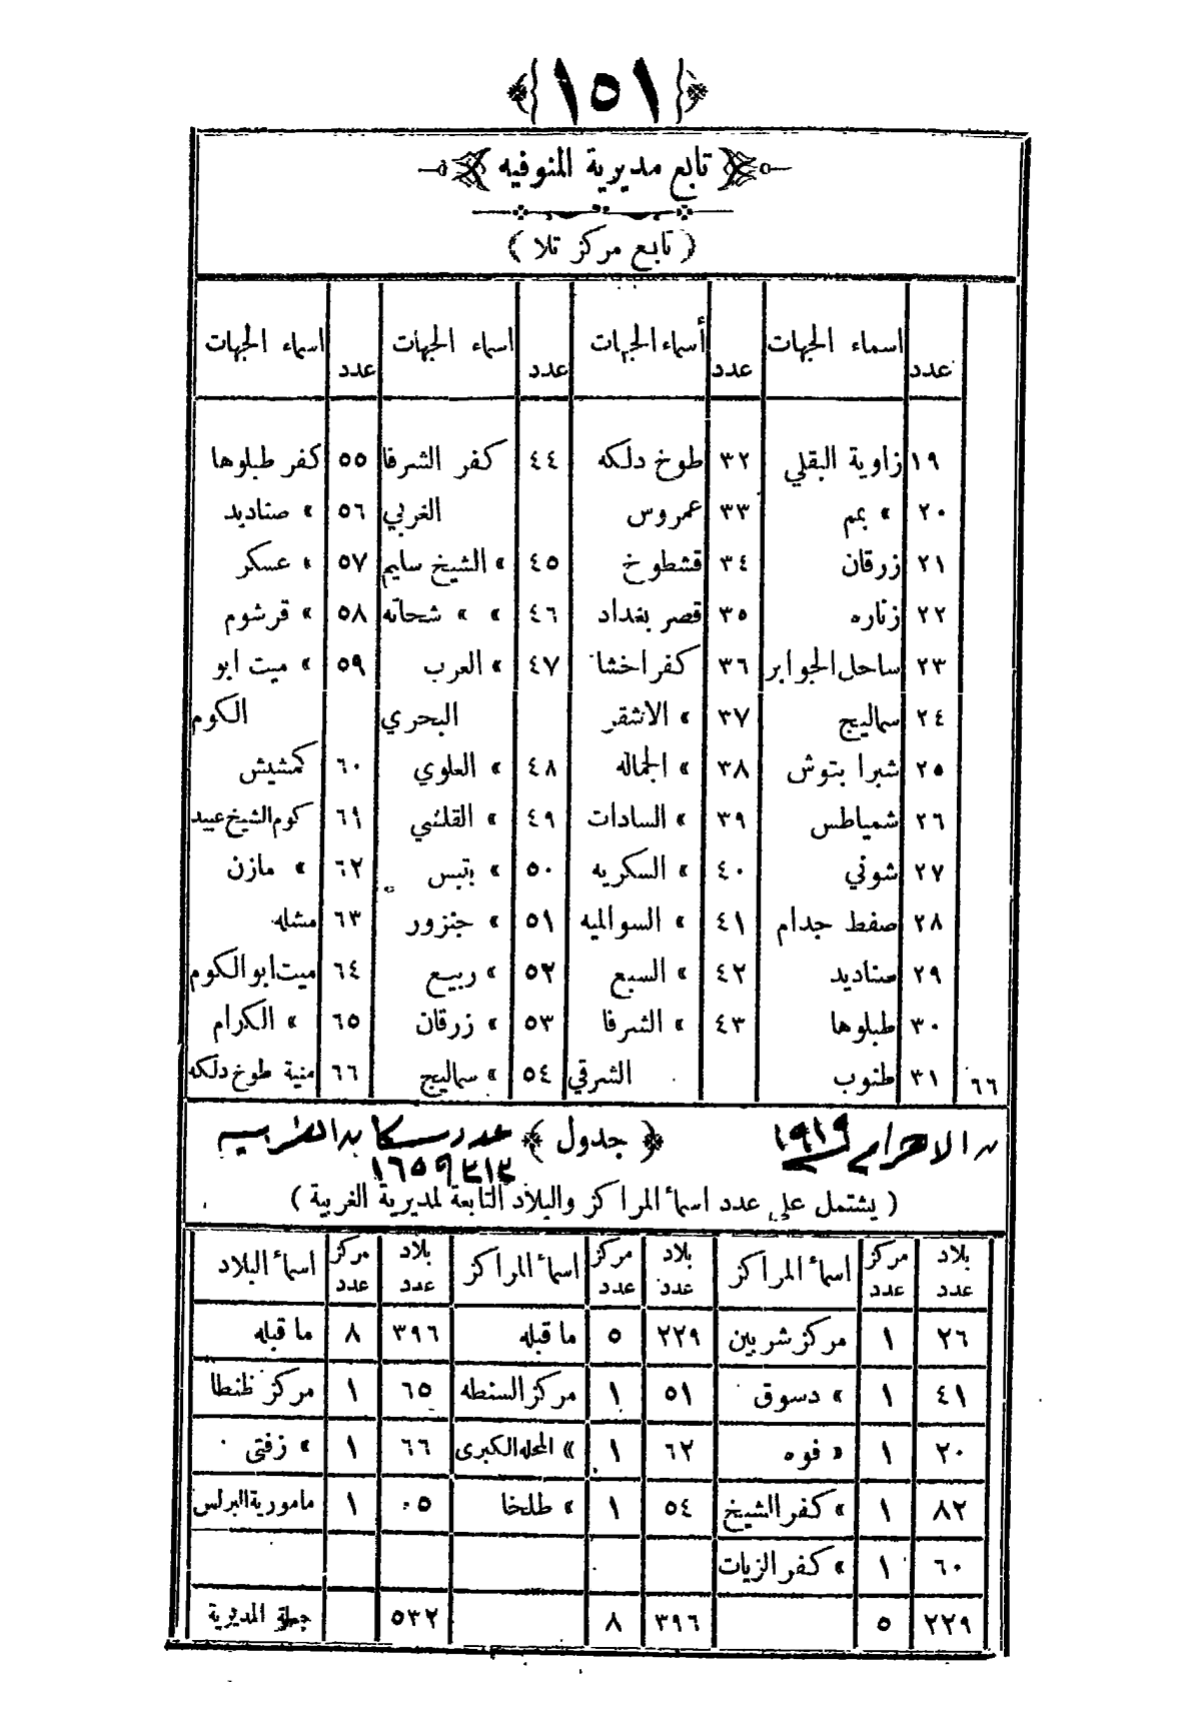 ١٥١
تابع مديرية المنوفيه
( تابع مركز تلا )
عدد اسماء الجهات عدد أسماء الجهات عدد اسماء الجهات عدد اسماء الجهات
١٩ زاوية البقلي ٣٢ طوخ دلكه ٤٤ كفر الشرفا ٥٥ كفر طبلوها
٢٠ » بمم ٣٣ عمروس الغربي ٥٦ » صناديد
٢١ زرقان ٣٤ قشطوخ ٤٥ » الشيخ سليم ٥٧ » عسكر
٢٢ زناره ٣٥ قصر بغداد ٤٦ » » شحاته ٥٨ » قرشوم
٢٣ ساحل الجوابر ٣٦ كفر اخشا ٤٧ » العرب ٥٩ » ميت ابو
٢٤ سماليج ٣٧ » الاشقر البحري الكوم
٢٥ شبرا بتوش ٣٨ » الجماله ٤٨ » العلوي ٦٠ كمشيش
٢٦ شمياطس ٣٩ » السادات ٤٩ » القلشي ٦١ كوم الشيخ عبيد
٢٧ شوني ٤٠ » السكريه ٥٠ » بتبس ٦٢ » مازن
٢٨ صفط جدام ٤١ » السوالميه ٥١ » جنزور ٦٣ مشله
٢٩ صناديد ٤٢ » السبع ٥٢ » ربيع ٦٤ ميت ابو الكوم
٣٠ طبلوها ٤٣ » الشرفا ٥٣ » زرقان ٦٥ » الكرام
٦٦ ٣١ طنوب الشرقي ٥٤ » سماليج ٦٦ منية طوخ دلكه
الاهرام ١٩١٩ ( جدول ) عدد سكان الغربيه
١٦٥٩٣١٣
( يشتمل على عدد اسمأ المراكز والبلاد التابعة لمديرية الغربية )
بلاد عدد مركز عدد اسمأ المراكز بلاد عدد مركز عدد اسمأ المراكز بلاد عدد مركز عدد اسمأ البلاد
٢٦ ١ مركز شربين ٢٢٩ ٥ ما قبله ٣٩٦ ٨ ما قبله
٤١ ١ » دسوق ٥١ ١ مركز السنطه ٦٥ ١ مركز طنطا
٢٠ ١ » فوه ٦٢ ١ » المحله الكبرى ٦٦ ١ » زفتى
٨٢ ١ » كفر الشيخ ٥٤ ١ » طلخا ٠٥ ١ مامورية البرلس
٦٠ ١ » كفر الزيات
٢٢٩ ٥ ٣٩٦ ٨ ٥٣٢ جملة المديرية